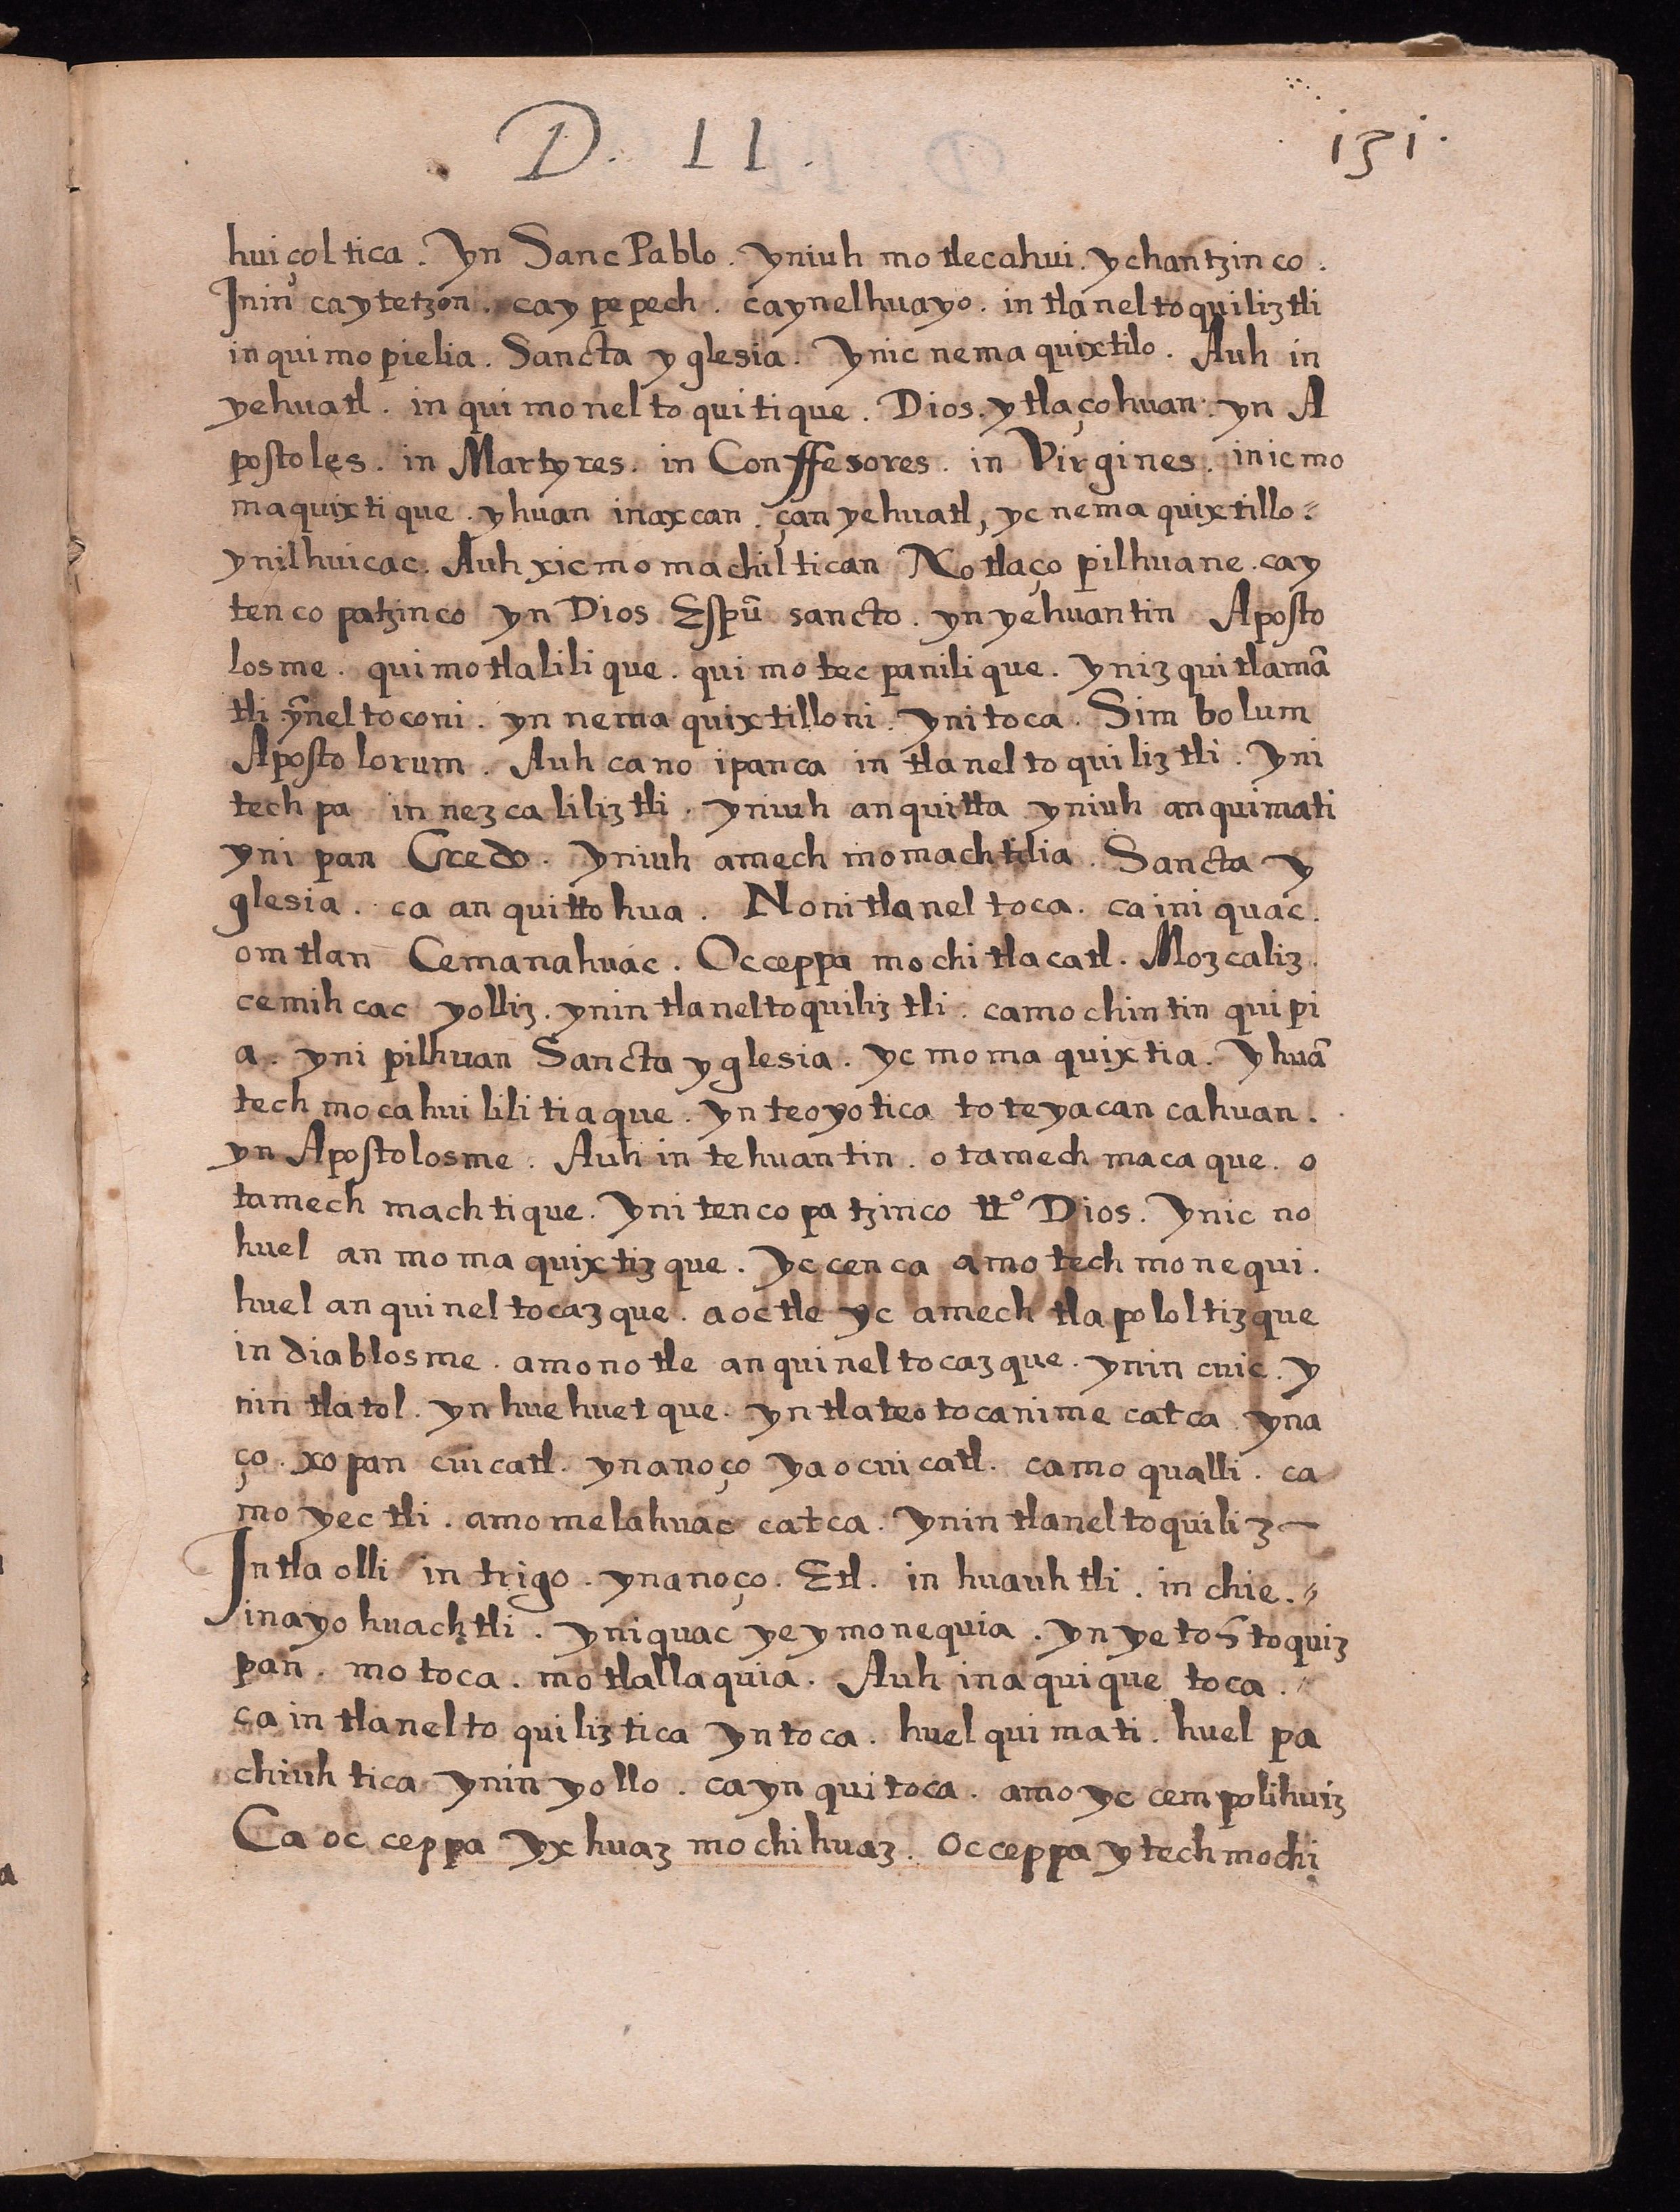 D. II.
131.
huiçoltica. Yn Sanc Pablo. Yniuh motlecahui. ychantzinco.
Inin caytetzon. caypepech. caynelhuayo. in tlaneltoquiliztli
inquimopielia. Sancta yglesia. Ynic nemaquixtilo. Auh in
yehuatl. in quimoneltoquitique. Dios. ytlaçohuan. yn A
postoles. in Martyres. in Conffesores. in Virgines. inicmo
maquixtique. yhuan inaxcan. çan yehuatl, yc nemaquixtillo.
ynilhuicac. Auh xicmomachiltican Notlaço pilhuane. cay
tencopatzinco yn Dios Espũ sancto. yn yehuantin Aposto
losme. quimotlalilique. quimotecpanilique. ynizquitlamã
tli ỹneltoconi. yn nemaquixtilloni. ynitoca. Simbolum
Apostolorum. Auh cano ipanca in tlaneltoquiliztli. Yni
techpa in nezcaliliztli. yniuh anquitta yniuh anquimati
ynipan Credo. Yniuh amechmomachtilia. Sancta y
glesia. ca anquittohua. Nonitlaneltoca. ca iniquac.
omtlan Cemanahuac. Occeppa mochitlacatl. Mozcaliz.
cemihcac yolliz. ynin tlaneltoquiliztli. camochintin quipi
a. ynipilhuan Sancta yglesia. yc momaquixtia. Yhuã
techmocahuililitiaque. yn teoyotica toteyacancahuan.
yn Apostolosme. Auh in tehuantin. otamechmacaque. o
tamechmachtique. Ynitencopatzinco tt.º Dios. Ynic no
huel anmomaquixtizque. Yccenca amotechmonequi.
huel anquineltocazque. aoctle yc amechtlapololtizque
in diablosme. amonotle anquineltocazque. ynin cuic. y
nin tlatol. yn huehuetque. yn tlateotocanime catca yna
ço. xopancuicatl. ynanoço yaocuicatl. camo qualli. ca
mo yectli. amomelahuac catca. Ynin tlaneltoquiliz
Intlaolli in trigo. ynanoço. Etl. in huauhtli. in chie.
inayohuachtli. yniquac yeymonequia. yn yetoñtoquiz
pan. motoca. motlallaquia. Auh inaquique toca.
ca in tlaneltoquiliztica yntoca. huelquimati. huel pa
chiuhtica ynin yollo. cayn quitoca. amo yc cempolihuiz
Ca occeppa yxhuaz mochihuaz. Occeppa ytechmochi